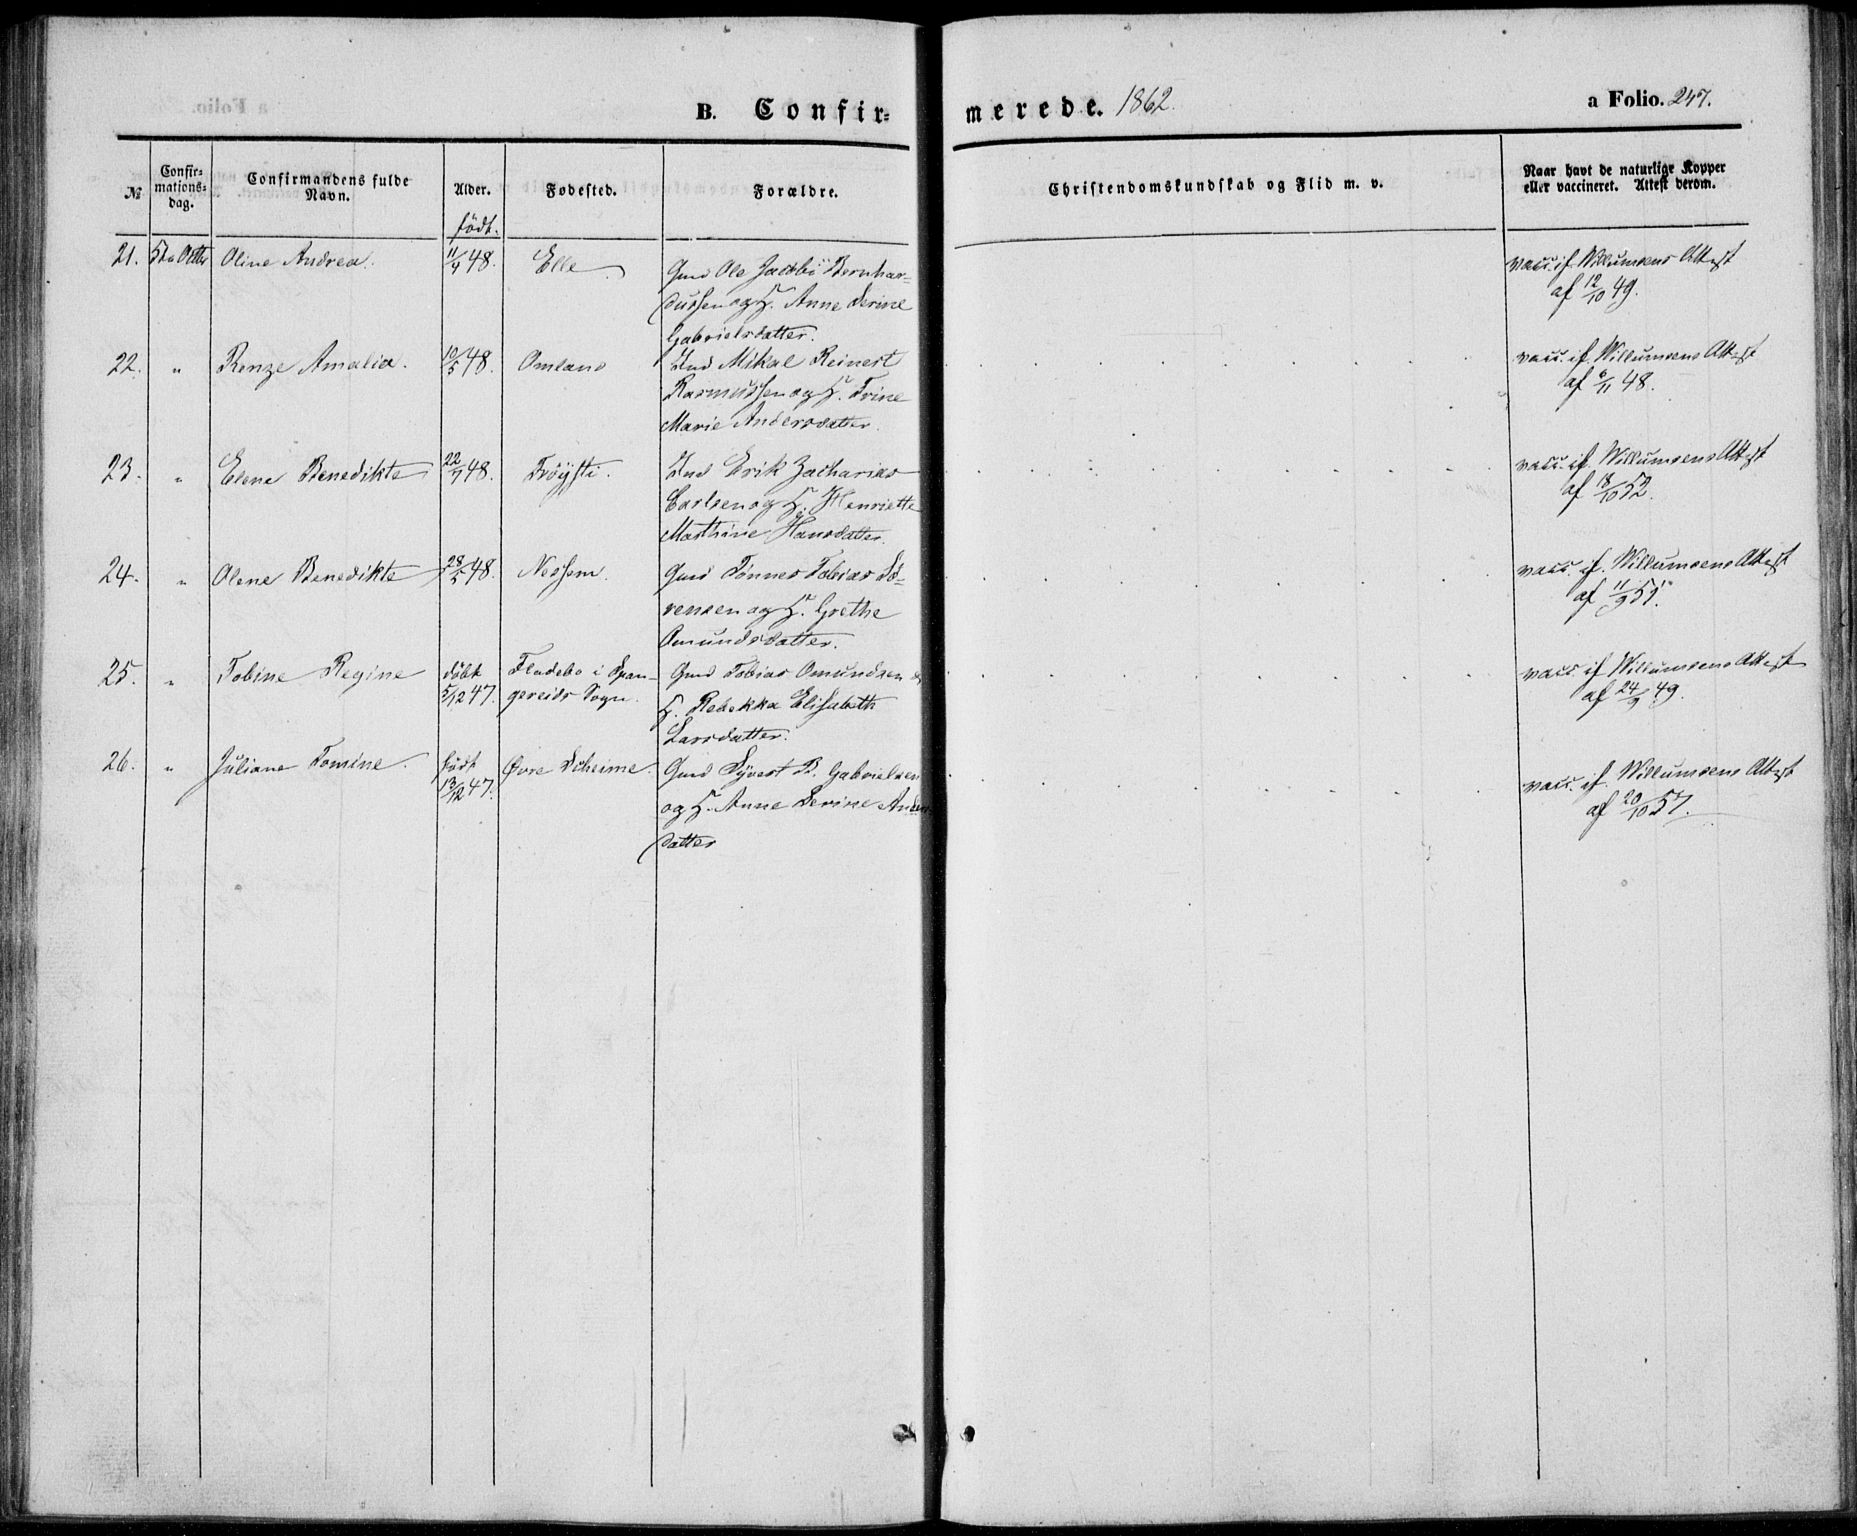 B. Confir-
merede. 1862.
a Folio. 247.
№
Confir-
mations-
dag.
Confirmandens fulde
Navn.
Alder.
Fødested.
Forældre.
Christendomskundskab og Flid m. v.
Naar havt de naturlige Kopper
eller vaccineret. Attest derom.
födt.
21. 5te Octbr Oline Andrea. 11/9 48. Elle Gmd Ole Jacobi Bernhar-
dussen og H. Anne Serine
Gabrielsdatter.
vacc. if. Willumsens Attest
af 12/10 49.
22. " Renze Amalia. 10/5 48. Omland Ind Mikal Reinert
Rasmussen og H. Trine
Marie Andersdatter.
vacc. if. Willumsens Attest
af 6/11 48.
23. " Elene Benedikte 22/7 48. Tröysti. Ind Erik Zacharias
Carlsen og H. Henriette
Marthine Hansdatter.
vacc. if. Willumsens Attest
af 18/10 52.
24. " Olene Benedikte 28/5 48. Nessem. Gmd Tönnes Tobias Sö-
rensen og H. Grethe
Omundsdatter.
vacc. if. Willumsens Attest
af 11/9 51.
25. " Tobine Regine döbt Fladebo i Span- Gmd Tobias Omundsen &
5/12 47. gereids Sogn. H. Rebekka Elisabeth
Larsdatter.
vacc. if Willumsens Attest
af 24/9 49.
26. " Juliane Tomine. födt Øvre Scheime. Gmd Syvert B. Gabrielsen
13/12 47. og H. Anne Serine Anders
datter
vacc. if. Willumsens Attest
af 20/10 57.